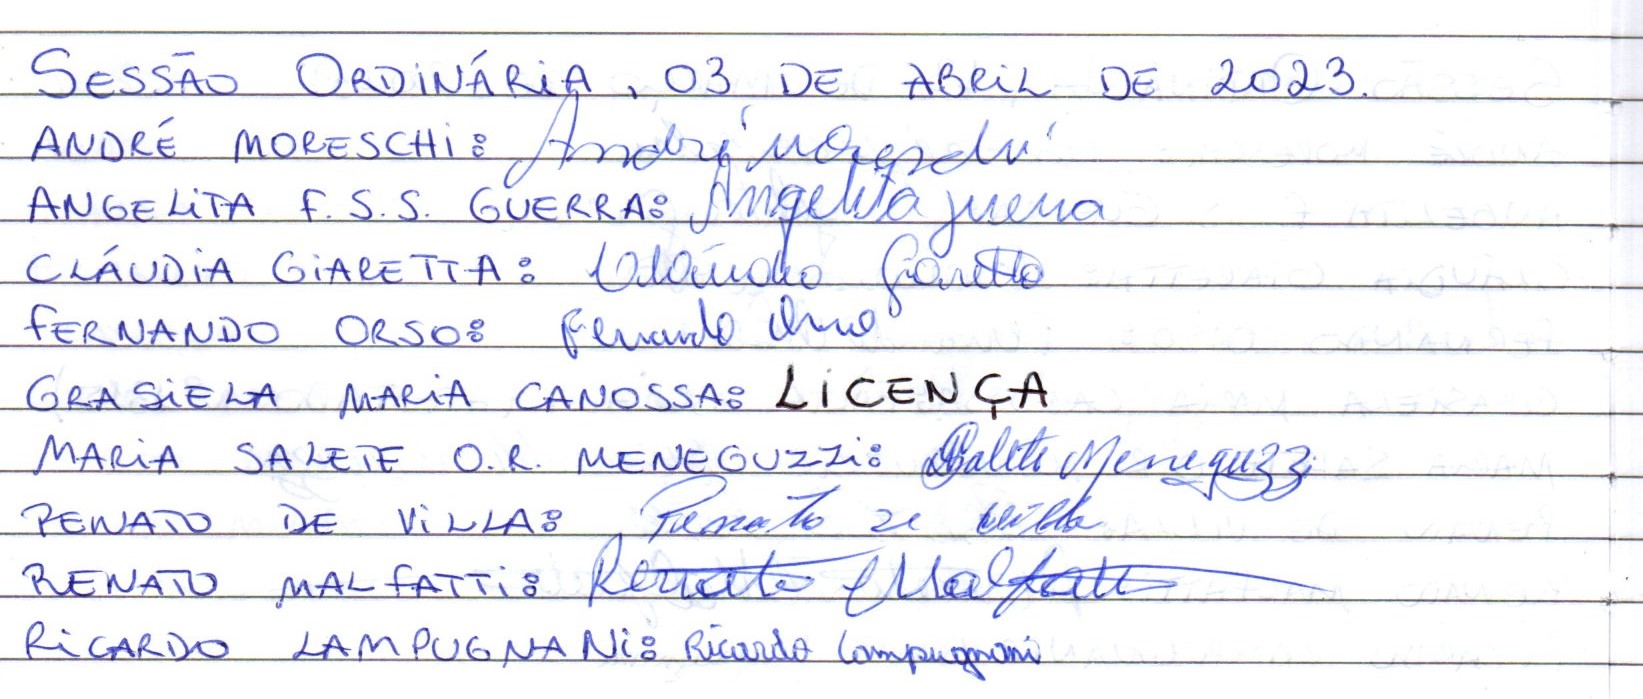 SESSÃO ORDINÁRIA, 03 DE ABRIL DE 2023.
ANDRÉ MORESCHI: André Moreschi
ANGELITA F.S.S. GUERRA: Angelita Guerra
CLÁUDIA GIARETTA: Cláudia Giaretta
FERNANDO ORSO: Fernando Orso
GRASIELA MARIA CANOSSA: LICENÇA
MARIA SALETE O.R. MENEGUZZI: Salete Meneguzzi
RENATO DE VILLA: Renato de Villa
RENATO MALFATTI: Renato Malfatti
RICARDO LAMPUGNANI: Ricardo Lampugnani